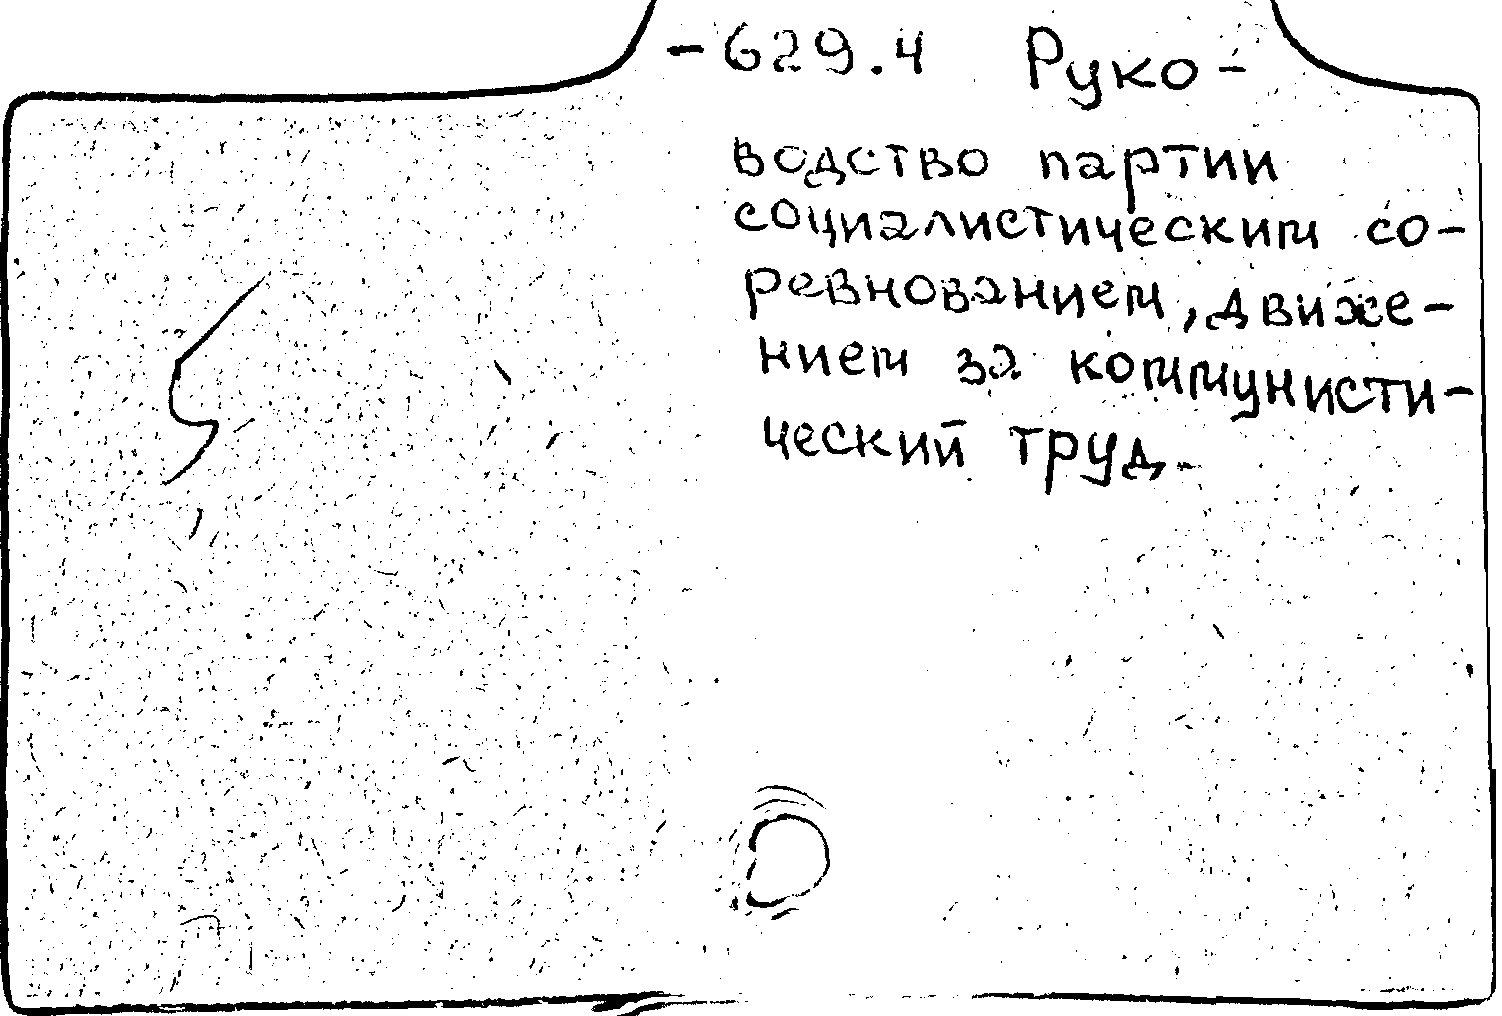 -629.4 Руко-
водство партии
социалистическим со-
ревнованием, движе-
нием за коммунисти-
ческий труд.